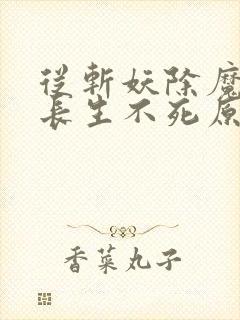 從斬妖除魔
長生不死原
香菜丸子